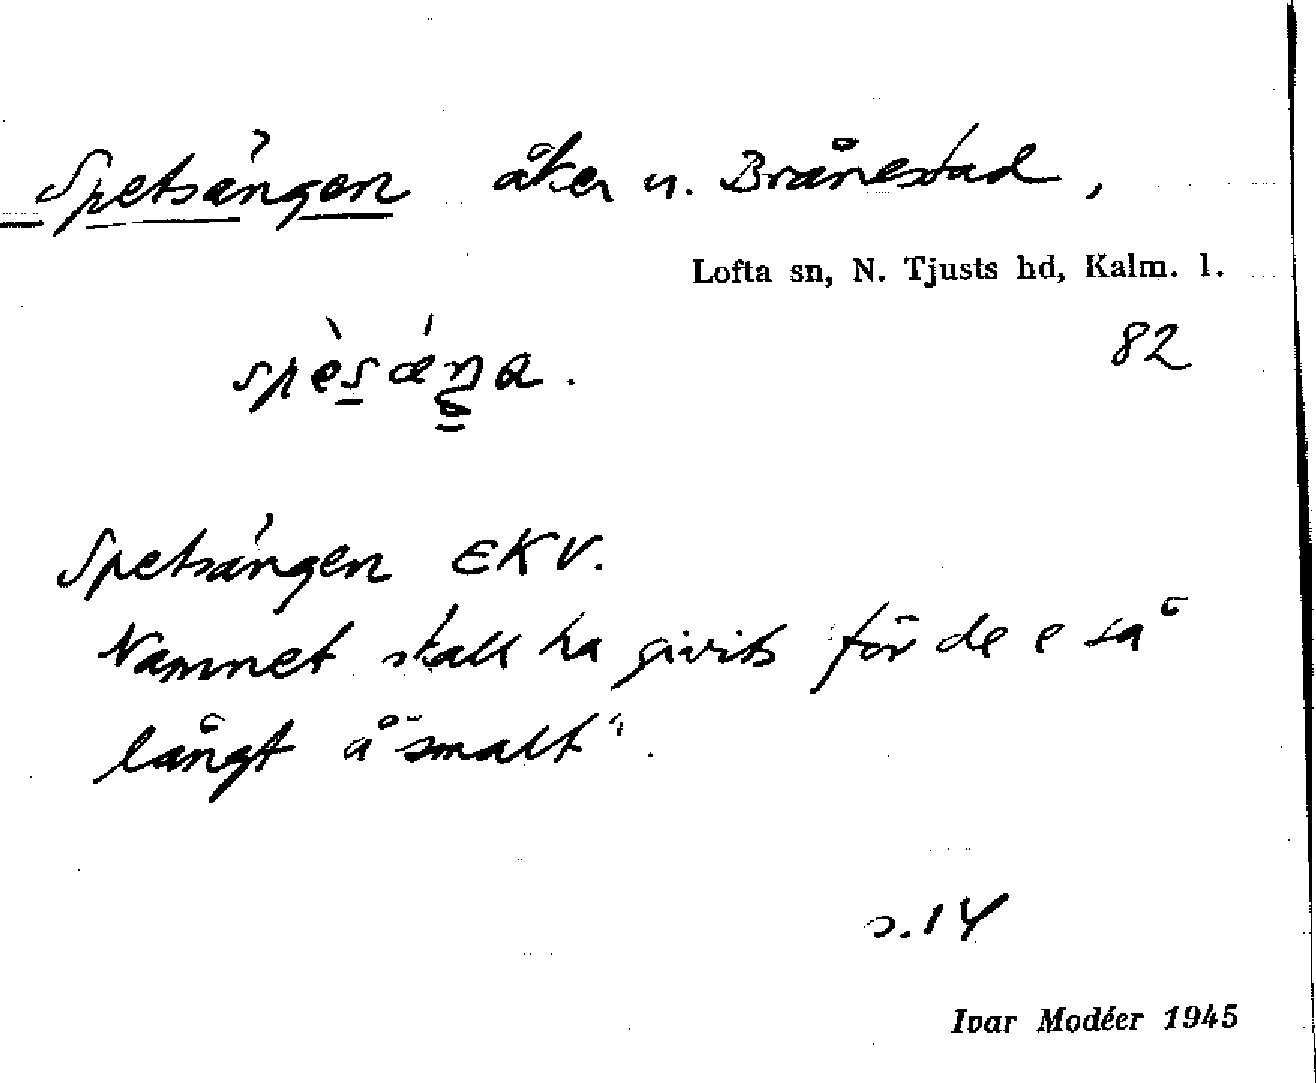 Spetsängen åker u. Brånestad,
Lofta sn, N. Tjusts hd, Kalm. l.
82
spèsǽŋa.
Spetsängen EKV.
Namnet skall ha givits "för de e så
långt å smalt".
s. 14
Ivar Modéer 1945